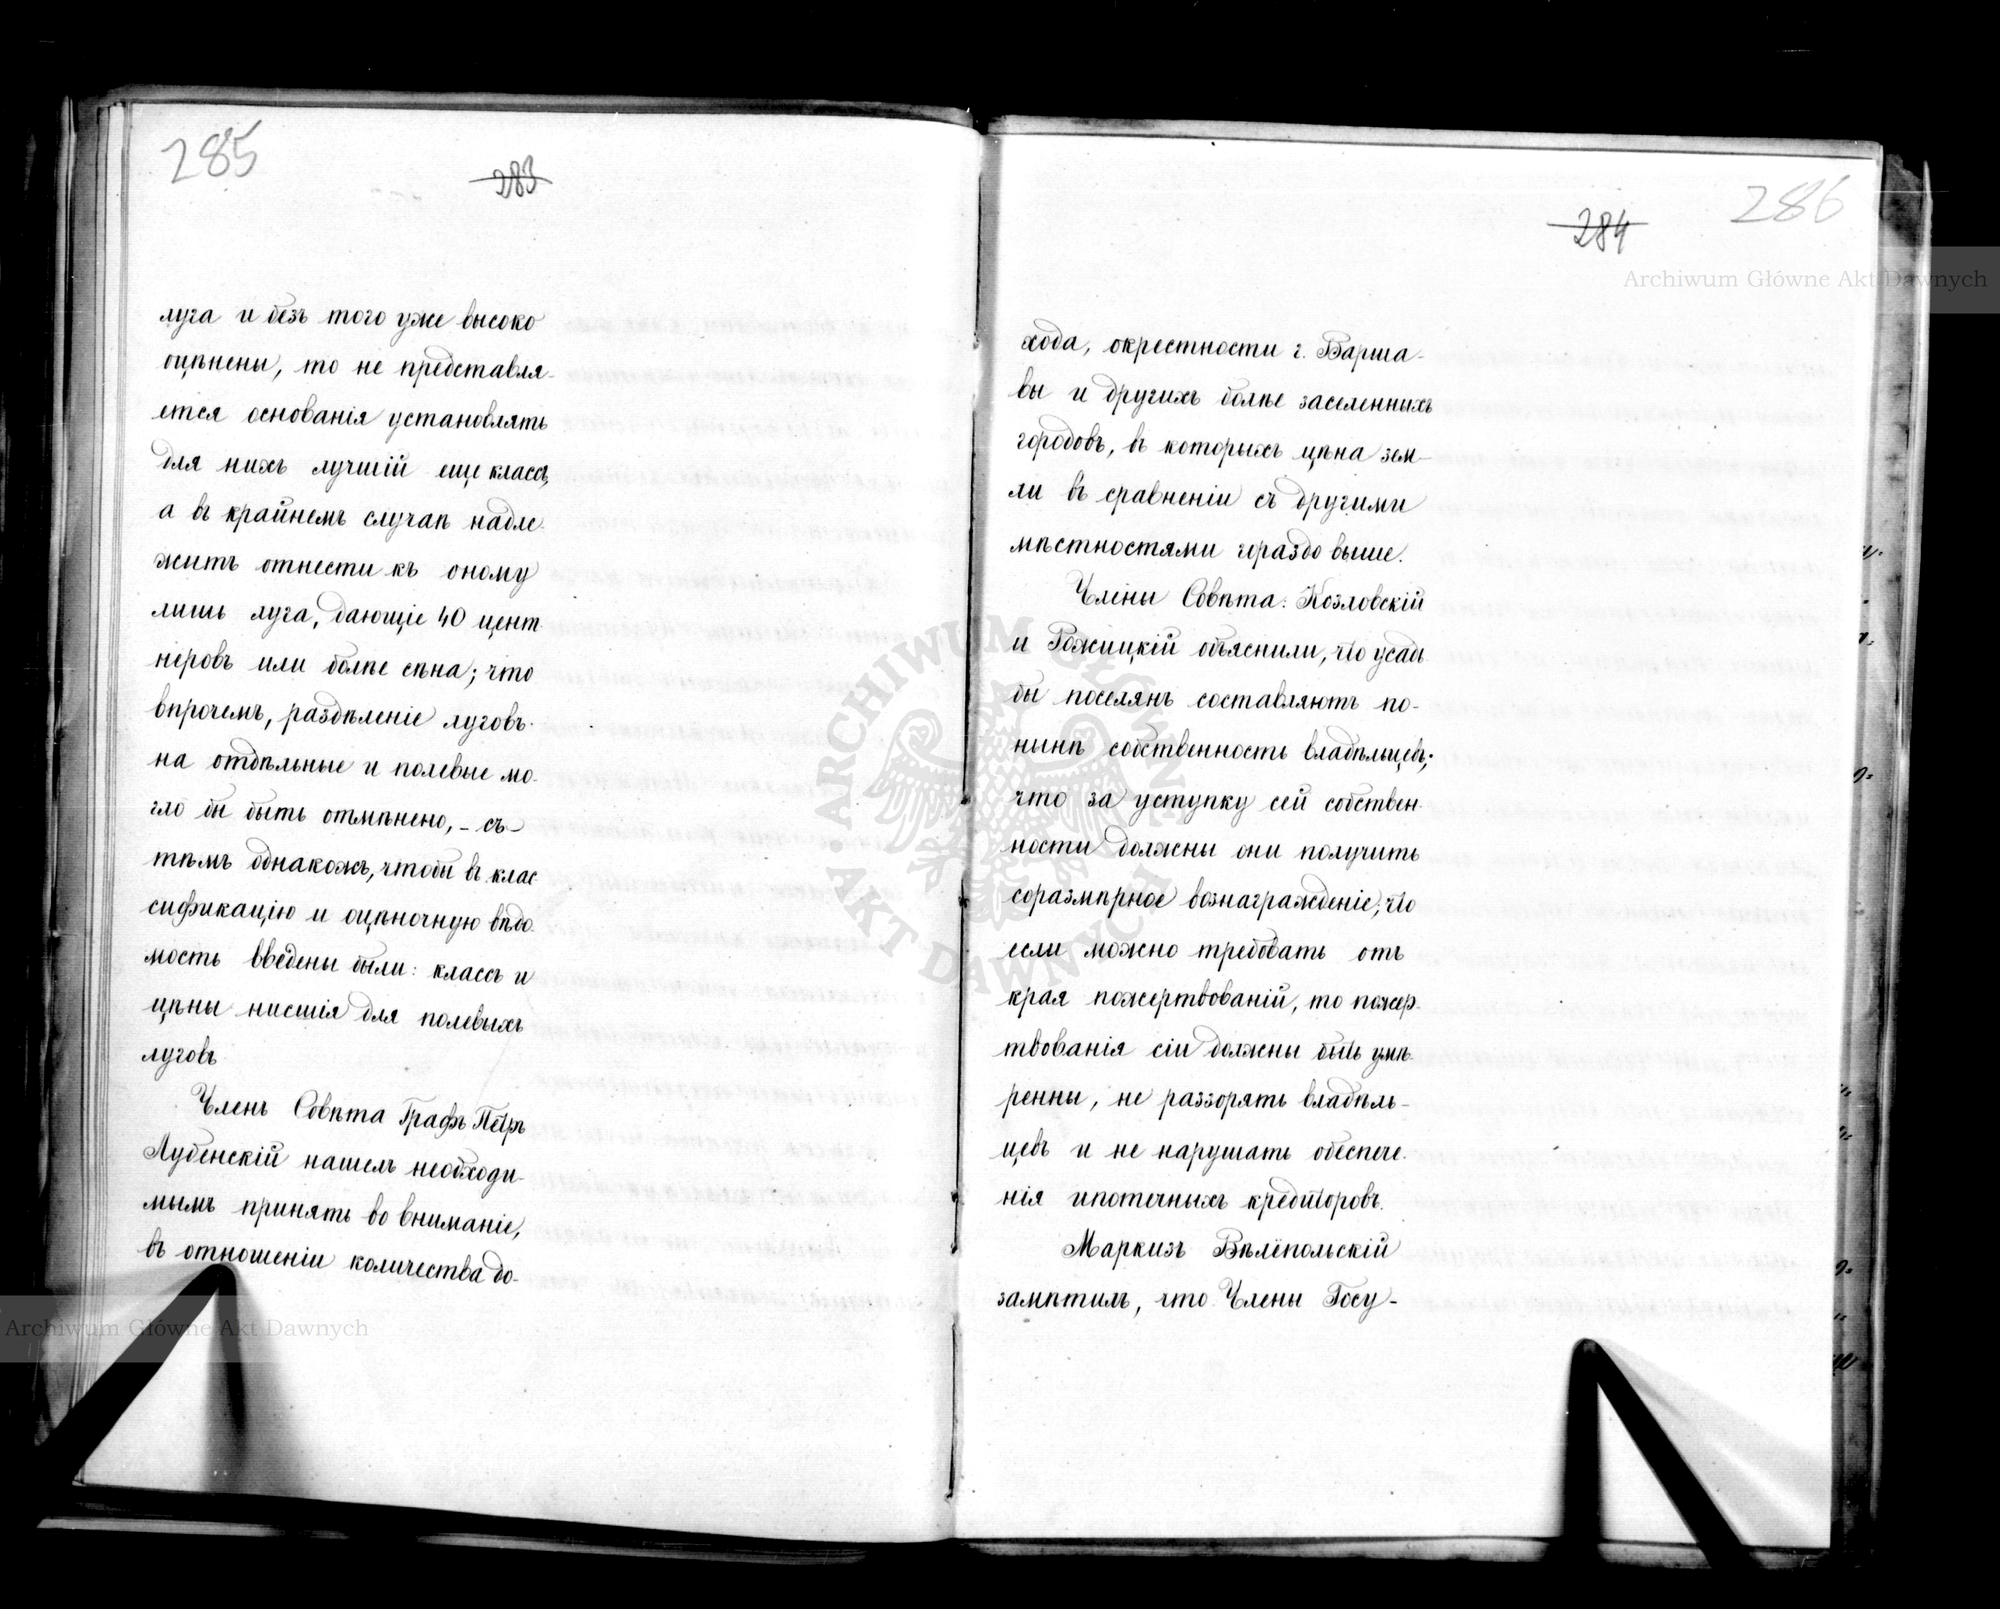 285
283
луга и безъ того уже высоко
оцѣнены, то не представля-
ется основанія установлять
для нихъ лучшій еще классъ,
а въ крайнемъ случаѣ надле-
житъ отнести къ оному
лишь луга, дающіе 40 цент-
неровъ или болѣе сѣна; что
впрочемъ, раздѣленіе луговъ
на отдѣльные и полевые мо-
гло бы быть отмѣнено, – съ
тѣмъ однакожъ, чтобы въ клас-
сификацію и оцѣночную вѣдо-
мость введены были: классъ и
цѣны нисшія для полевыхъ
луговъ
Членъ Совѣта Графъ Петръ
Лубенскій нашелъ необходи-
мымъ принять во вниманіе,
въ отношеніи количества до-
286
284
хода, окрестности г. Варша-
вы и другихъ болѣе заселенныхъ
городовъ, въ которыхъ цѣна зем-
ли въ сравненіи съ другими
мѣстностями гораздо выше.
Члены Совѣта: Козловскій
и Рожицкій объяснили, что усадь-
бы поселянъ составляютъ по-
нынѣ собственность владѣльцевъ;
что за уступку сей собствен-
ности должны они получить
соразмѣрное вознагражденіе; что
если можно требовать отъ
края пожертвованій, то пожер-
твованія сіи должны быть умѣ-
ренны, не раззорять владѣль-
цевъ и не нарушать обеспече-
нія ипотечныхъ кредиторовъ.
Маркизъ Вѣлёпольскій
замѣтилъ, что Члены Госу-
Archiwum Główne Akt Dawnych
Archiwum Główne Akt Dawnych
ARCHIWUM GŁÓWNE AKT DAWNYCH